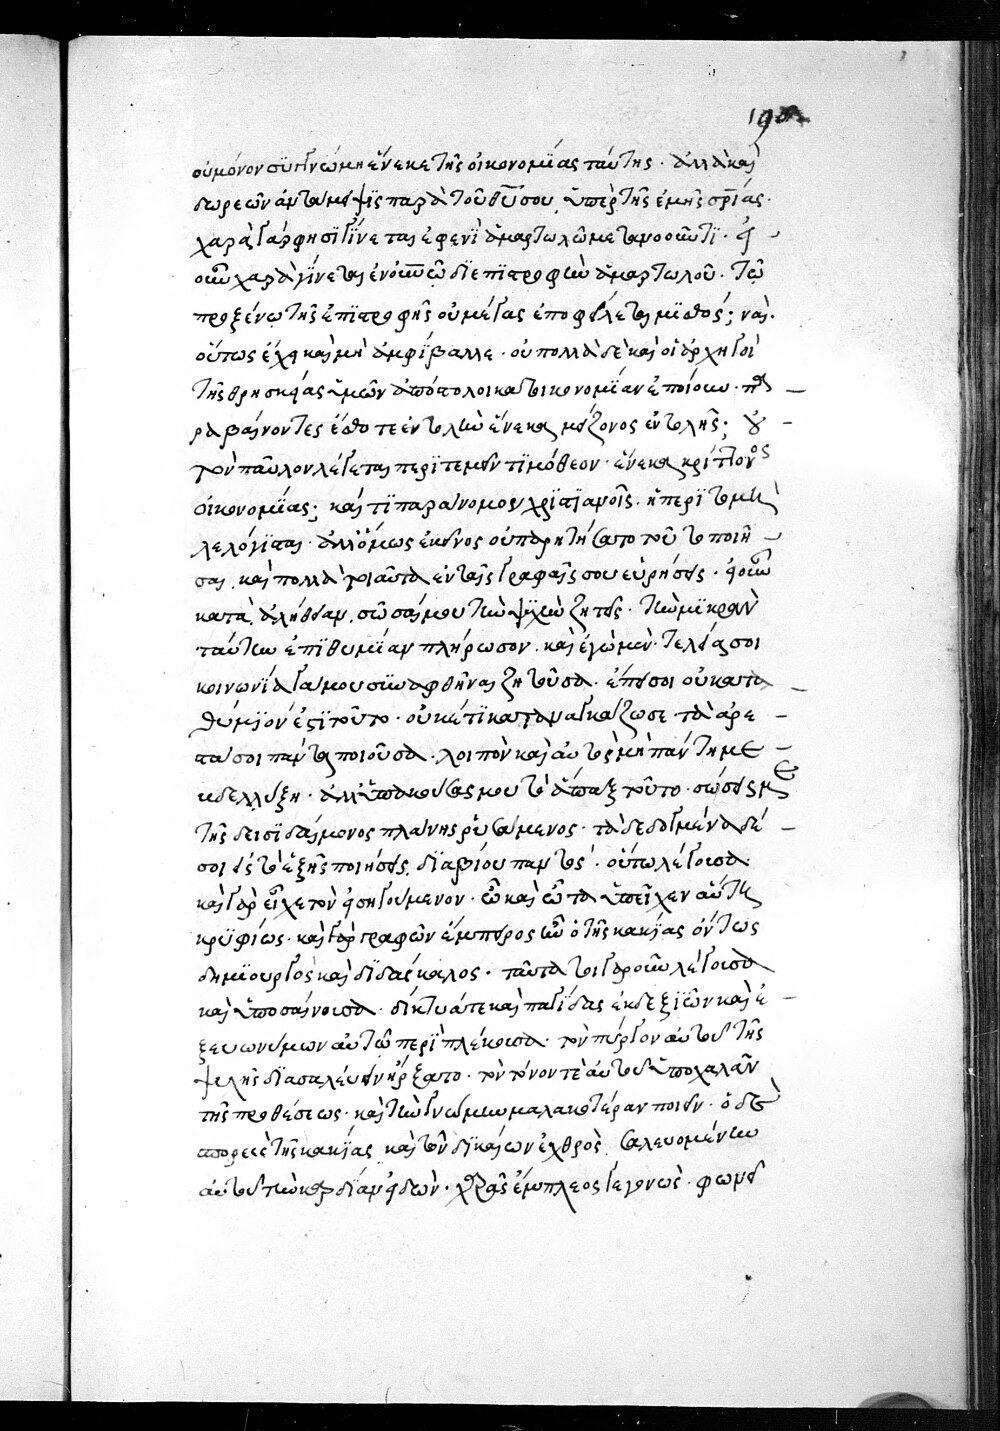 198
οὐ μόνον συγγνώμη ἕνεκε τῆς οἰκονομίας ταύτης · ἀλλὰ καὶ
δωρεῶν ἀνταμείψις παρὰ τοῦ θεοῦ σου ὑπὲρ τῆς ἐμῆς σρίας ·
χαρὰ γάρ φησι γίνεται ἐφ ενὶ ἁμαρτωλῶ μετανοοῦντι · εἰ
οὖν χαρὰ γίνεται ἐν οὐνῶ δι ἐπιστροφὴν ἁμαρτωλοῦ · τῶ
προξένω τῆς ἐπιστροφῆς οὐ μέγας ἐποφείλεται μισθός ; ναὶ ·
οὕτως ἔχει καὶ μὴ ἀμφίβαλλε · οὐ πολλὰ δὲ καὶ οἱ ἀρχηγοὶ
τῆς θρησκείας ὑμῶν ἀπόστολοι κατ οἰκονομίαν ἐποίουν · πα
ραβαίνοντες ἔσθ ότε ἐντολὴν ἕνεκα μείζονος ἐντολῆς ; οὐ
τὸν παῦλον λέγεται περιτεμεῖν τιμόθεον · ἕνεκα κρίττονος
οἰκονομίας ; καί τι παράνομος χριστιανοῖς · ἡ περιτομὴ
λελόγισται · ἀλλ ὅμως ἐκεῖνος οὐ παρῃτήσατο τοῦτο ποιῆ
σαι · καὶ πολλὰ τοιαῦτα ἐν ταῖς γραφαῖς σου εὑρήσεις · εἰ οὖν
κατὰ ἀλήθειαν σῶσαί μου τὴν ψυχὴν ζητεῖς · τὴν μικρὰν
ταύτην ἐπιθυμίαν πλήρωσον · κἀγὼ μὲν τελεία σοι
κοινωνία γάμου συναφθῆναι ζητοῦσα · ἐπεί σοι οὐ κατα
θύμιόν ἐστι τοῦτο · οὐκέτι καταναγκάζω σε τὰ ἀρε
στά σοι πάντα ποιοῦσα · λοιπὸν καὶ αὐτὸς μὴ πάντη με
βδελλύξη · ἀλλ ὑπακούσας μου τὸ ἅπαξ τοῦτο · σώσεις με
τῆς δεισιδαίμονος πλάνης ῥυσάμενος · τὰ δεδογμένα δέ
σοι εἰς τὸ ἑξῆς ποιήσεις διὰ βίου παντός · οὕτω λέγουσα
καὶ γὰρ εἶχε τὸν εἰσηγούμενον · ὧ καὶ ὦτα ὑπεῖχεν αὕτη
κρυφίως · καὶ γὰρ γραφῶν ἔμπειρος ὢν ὁ τῆς κακίας ὄντως
δημιουργὸς καὶ διδάσκαλος · ταῦτα τοιγαροῦν λέγουσα
καὶ ὑποσαίνουσα · δίκτυά τε καὶ παγίδας ἐκ δεξιῶν καὶ ἐ
ξευωνύμων αὐτῶ περιπλέκουσα · τὸν πύργον αὐτοῦ τῆς
ψυχῆς διασαλεύειν ἤρξατο · τὸν τόνον τὲ αὐτοῦ ὑποχαλᾶν
τῆς προθέσεως · καὶ τὴν γνώμην μαλακωτέραν ποιεῖν · ὁ δὲ
σπορεὺς τῆς κακίας καὶ τῶν δικαίων ἐχθρὸς σαλευομένην
αὐτοῦ τὴν καρδίαν εἰδὼν · χαρᾶς ἔμπλεος γεγονὼς · φωνεῖ